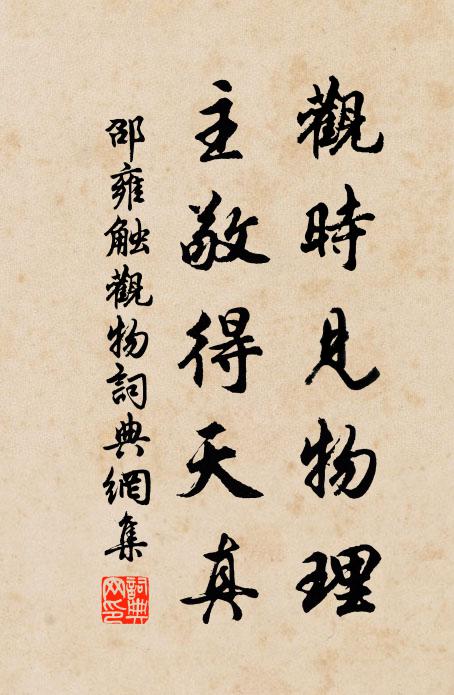 觀時見物理
主敬得天真
邵雍触觀物詞典網集
詞典
网印